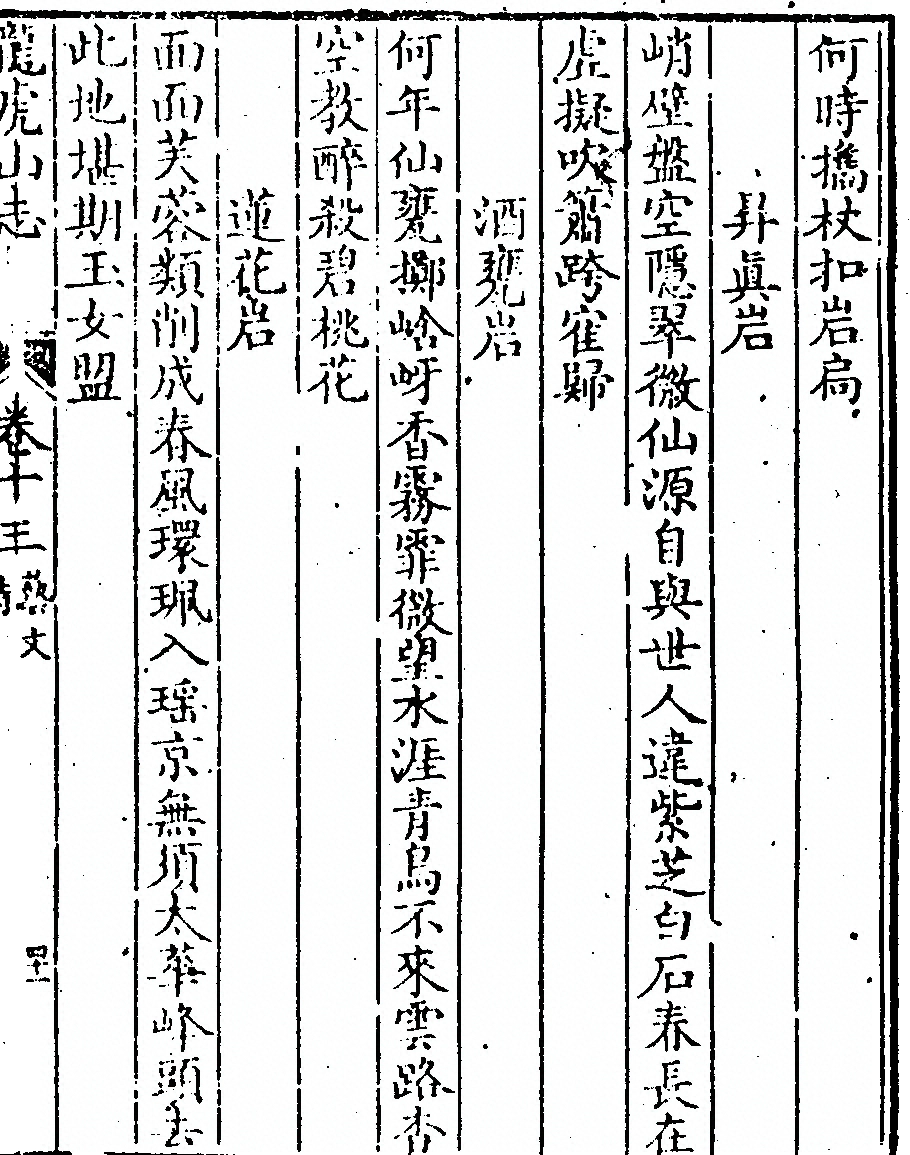 何時擕杖扣岩扃
昇眞岩
峭壁盤空隱翠微仙源自與世人違紫芝白石春長在
虛擬吹簫跨隺歸
酒甕岩
何年仙甕擲崯岈香霧霏微望水涯青鳥不來雲路杳
空教醉殺碧桃花
蓮花岩
面面芙蓉類削成春風環珮入瑶京無須太華峰頭去
此地堪期玉女盟
龍虎山志
卷十
藝文